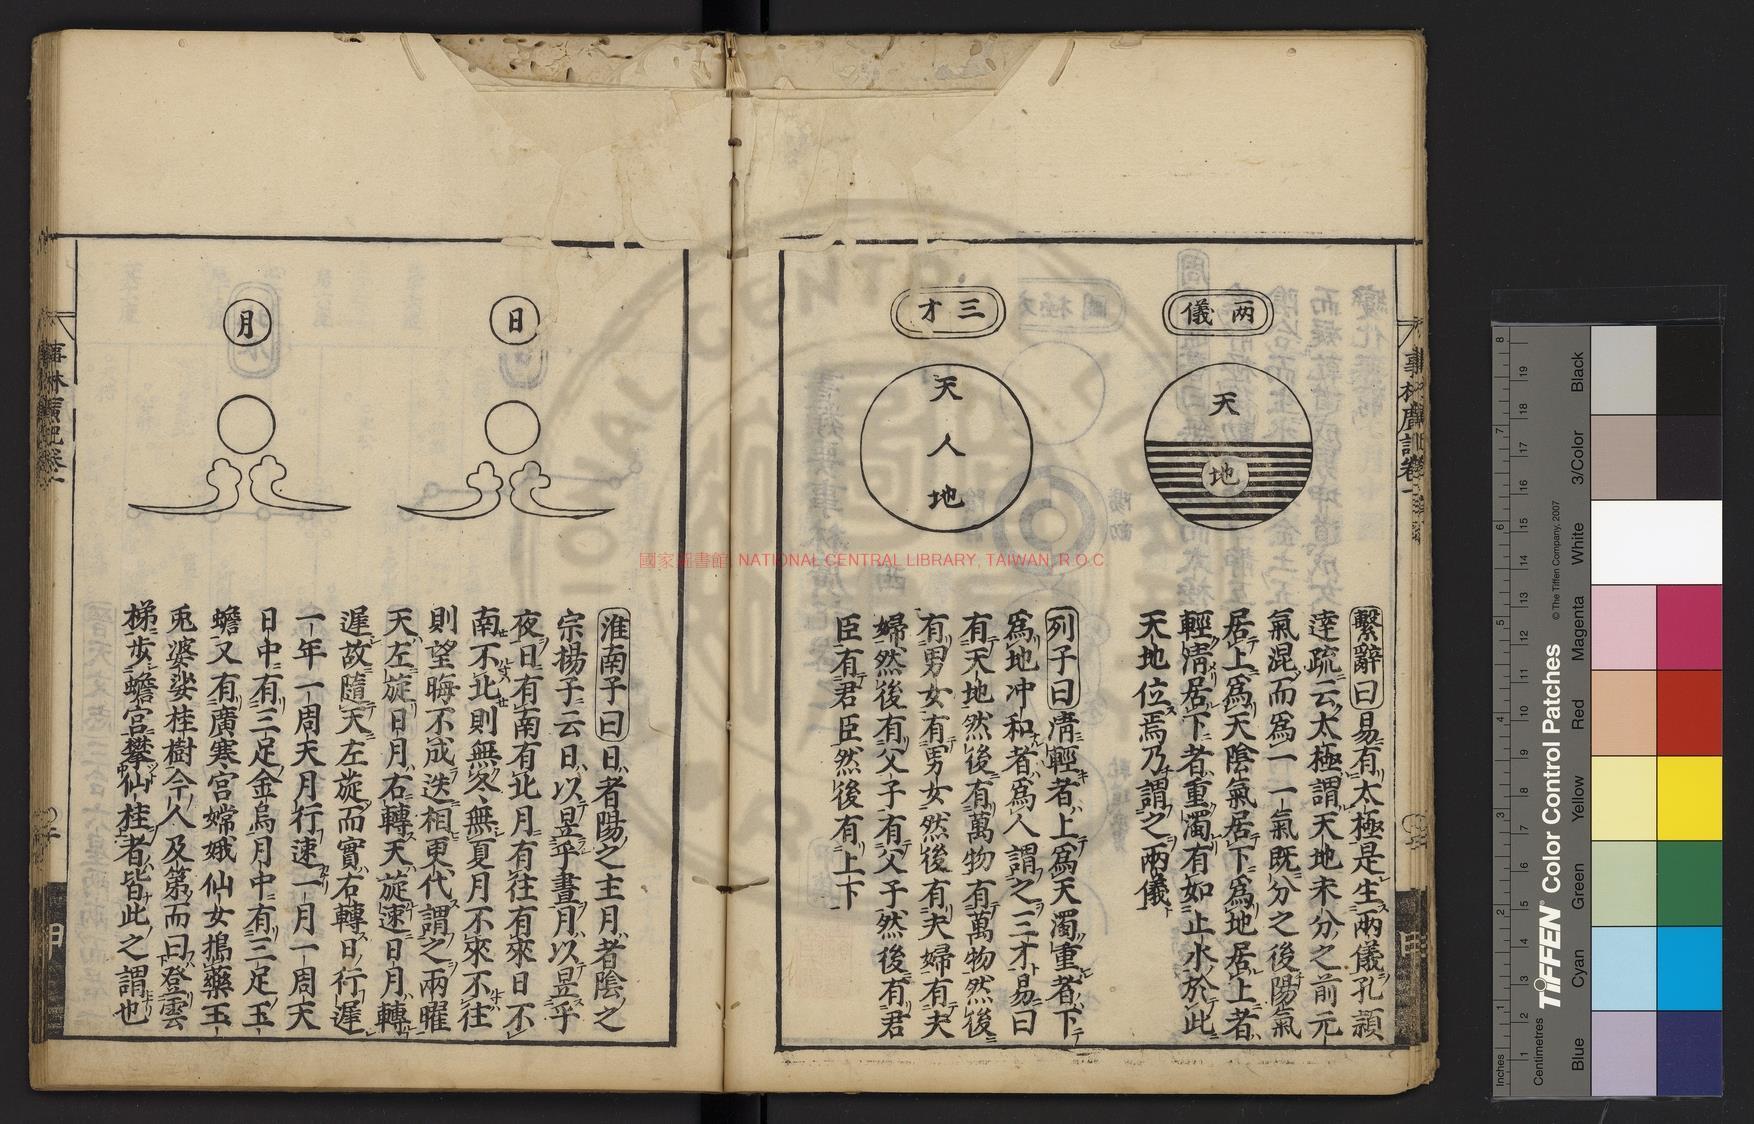 兩儀
天
地
繫辭曰易有太極是生兩儀孔頴
達疏云太極謂天地未分之前元
氣混而爲一一氣既分之後陽氣
居上爲天陰氣居下爲地居上者
輕淸居下者重濁有如止水於此
天地位焉乃謂之兩儀
三才
天
人
地
列子曰淸輕者上爲天濁重者下
爲地冲和者爲人謂之三才易曰
有天地然後有萬物有萬物然後
有男女有男女然後有夫婦有夫
婦然後有父子有父子然後有君
臣有君臣然後有上下
日
淮南子曰日者陽之主月者陰之
宗楊子云日以昱乎晝月以昱乎
夜日有南有北月有往有來日不
南不北則無冬無夏月不來不往
則望晦不成迭相更代謂之兩曜
天左旋日月右轉天旋速日月轉
遲故隨天左旋而實右轉日行遲
一年一周天月行速一月一周天
日中有三足金烏月中有三足玉
蟾又有廣寒宮嫦娥仙女搗藥玉
兎婆娑桂樹今人及第而曰登雲
梯步蟾宮攀仙桂者皆此之謂也
月
事林廣記卷一
國家圖書館 NATIONAL CENTRAL LIBRARY, TAIWAN, R.O.C
TIFFEN® Color Control Patches
© The Tiffen Company, 2007
Inches
Centimetres
Blue
Cyan
Green
Yellow
Red
Magenta
White
3/Color
Black